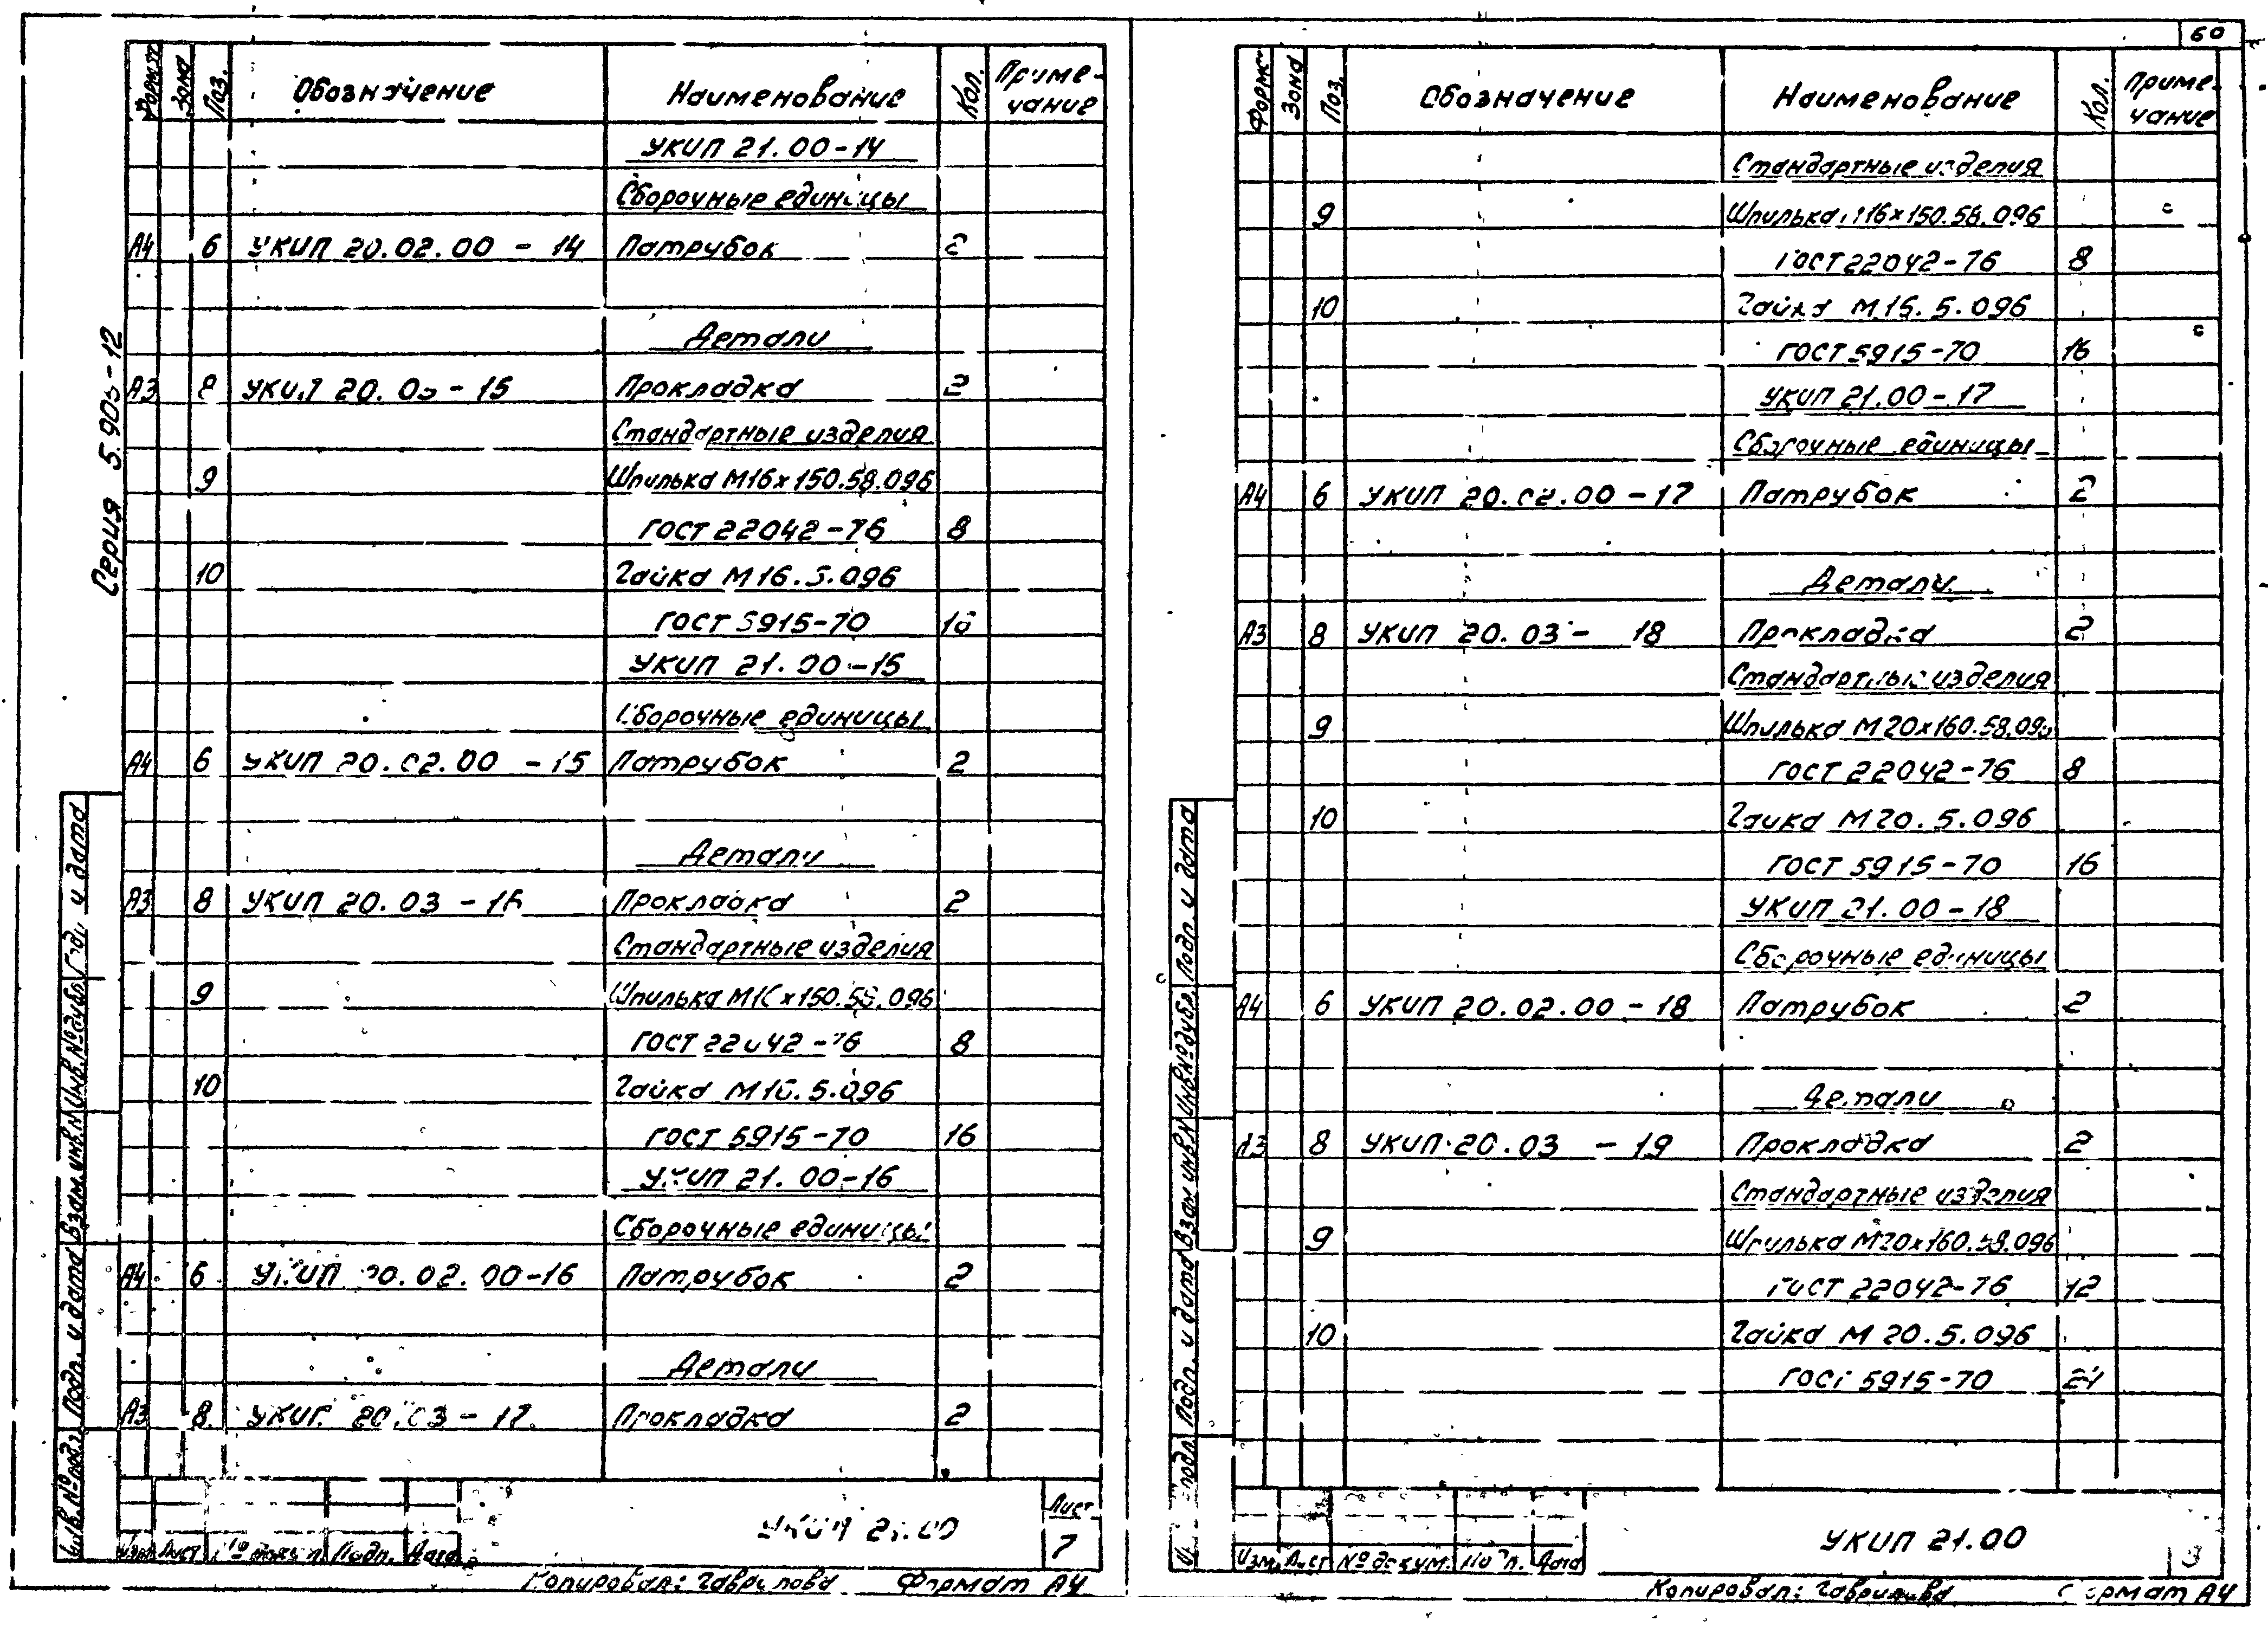 60
Серия 5.903-12
Формат Зона Поз. Обозначение Наименование Кол. Приме-чание
УКИП 21.00-14
Сборочные единицы
А4 6 УКИП 20.02.00 - 14 Патрубок 2
Детали
А3 8 УКИП 20.03 - 15 Прокладка 2
Стандартные изделия
9 Шпилька М16х150.58.096
ГОСТ 22042-76 8
10 Гайка М16.5.096
ГОСТ 5915-70 16
УКИП 21.00-15
Сборочные единицы
А4 6 УКИП 20.02.00 - 15 Патрубок 2
Детали
А3 8 УКИП 20.03 - 16 Прокладка 2
Стандартные изделия
9 Шпилька М16х150.58.096
ГОСТ 22042-76 8
10 Гайка М16.5.096
ГОСТ 5915-70 16
УКИП 21.00-16
Сборочные единицы
А4 6 УКИП 20.02.00-16 Патрубок 2
Детали
А3 8 УКИП 20.03 - 17 Прокладка 2
Инв.№подл. Подп. и дата Взам.инв.№ Инв.№дубл. Подп. и дата
Изм. Лист № докум. Подп. Дата
УКИП 21.00
Лист
7
Копировал: Гаврилова Формат А4
Формат Зона Поз. Обозначение Наименование Кол. Приме-чание
Стандартные изделия
9 Шпилька М16х150.58.096
ГОСТ 22042-76 8
10 Гайка М16.5.096
ГОСТ 5915-70 16
УКИП 21.00-17
Сборочные единицы
А4 6 УКИП 20.02.00 - 17 Патрубок 2
Детали
А3 8 УКИП 20.03 - 18 Прокладка 2
Стандартные изделия
9 Шпилька М20х160.58.096
ГОСТ 22042-76 8
10 Гайка М20.5.096
ГОСТ 5915-70 16
УКИП 21.00-18
Сборочные единицы
А4 6 УКИП 20.02.00 - 18 Патрубок 2
Детали
А3 8 УКИП 20.03 - 19 Прокладка 2
Стандартные изделия
9 Шпилька М20х160.58.096
ГОСТ 22042-76 12
10 Гайка М20.5.096
ГОСТ 5915-70 24
подл. Подп. и дата Взам.инв.№ Инв.№дубл. Подп. и дата
Изм. Лист № докум. Подп. Дата
УКИП 21.00
Копировал: Гаврилова Формат А4